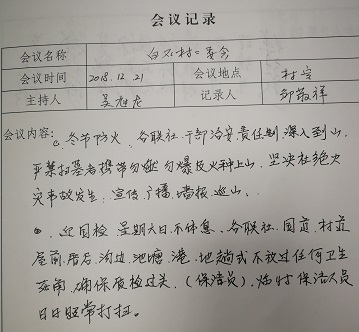 会议记录
会议名称 白石村二委会
会议时间 2018.12.21 会议地点 村室
主持人 吴 龙 记录人 邹敬祥
会议内容： 冬节防火，各联社干部治安责任制深入到山，
严禁扫墓者携带勿燃勿爆及火种上山，坚决杜绝火
灾事故发生，宣传广播，墙报，巡山、
迎国检，星期六日不休息，各联社，国道，村道
屋前屋后，沟边，池塘，港，地趟式不放过任何卫生
死角，确保质检过关，（保洁员），临时保洁人员
日日照常打扫。